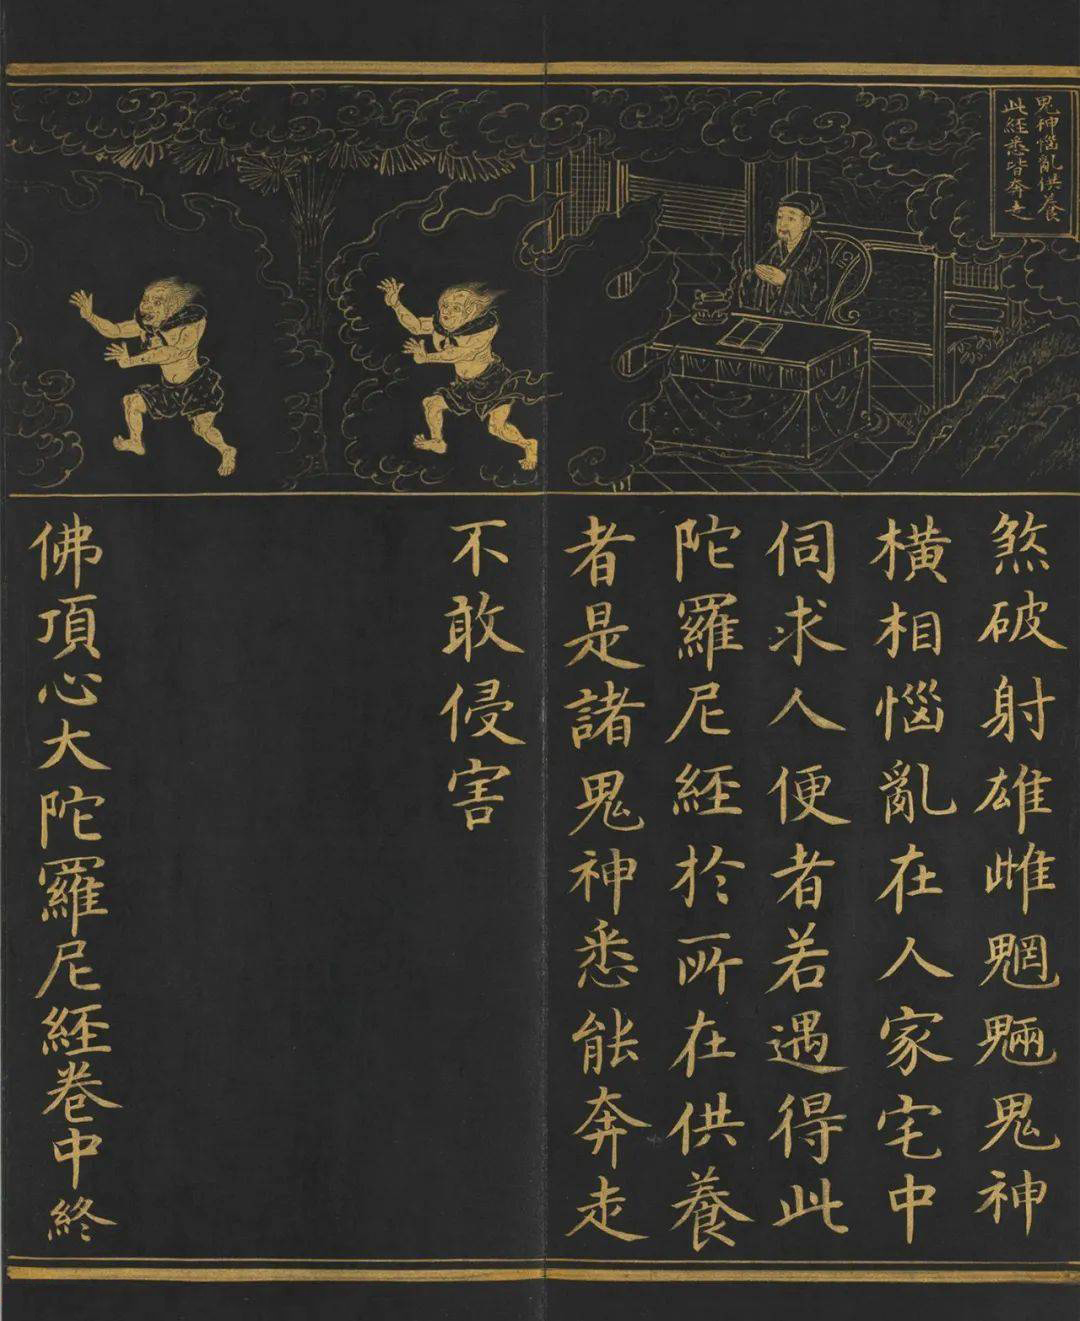 鬼神惱亂供養
此經悉皆奔走
煞破射雄雌魍魎鬼神
橫相惱亂在人家宅中
伺求人便者若遇得此
陀羅尼經於所在供養
者是諸鬼神悉能奔走
不敢侵害
佛頂心大陀羅尼經卷中終